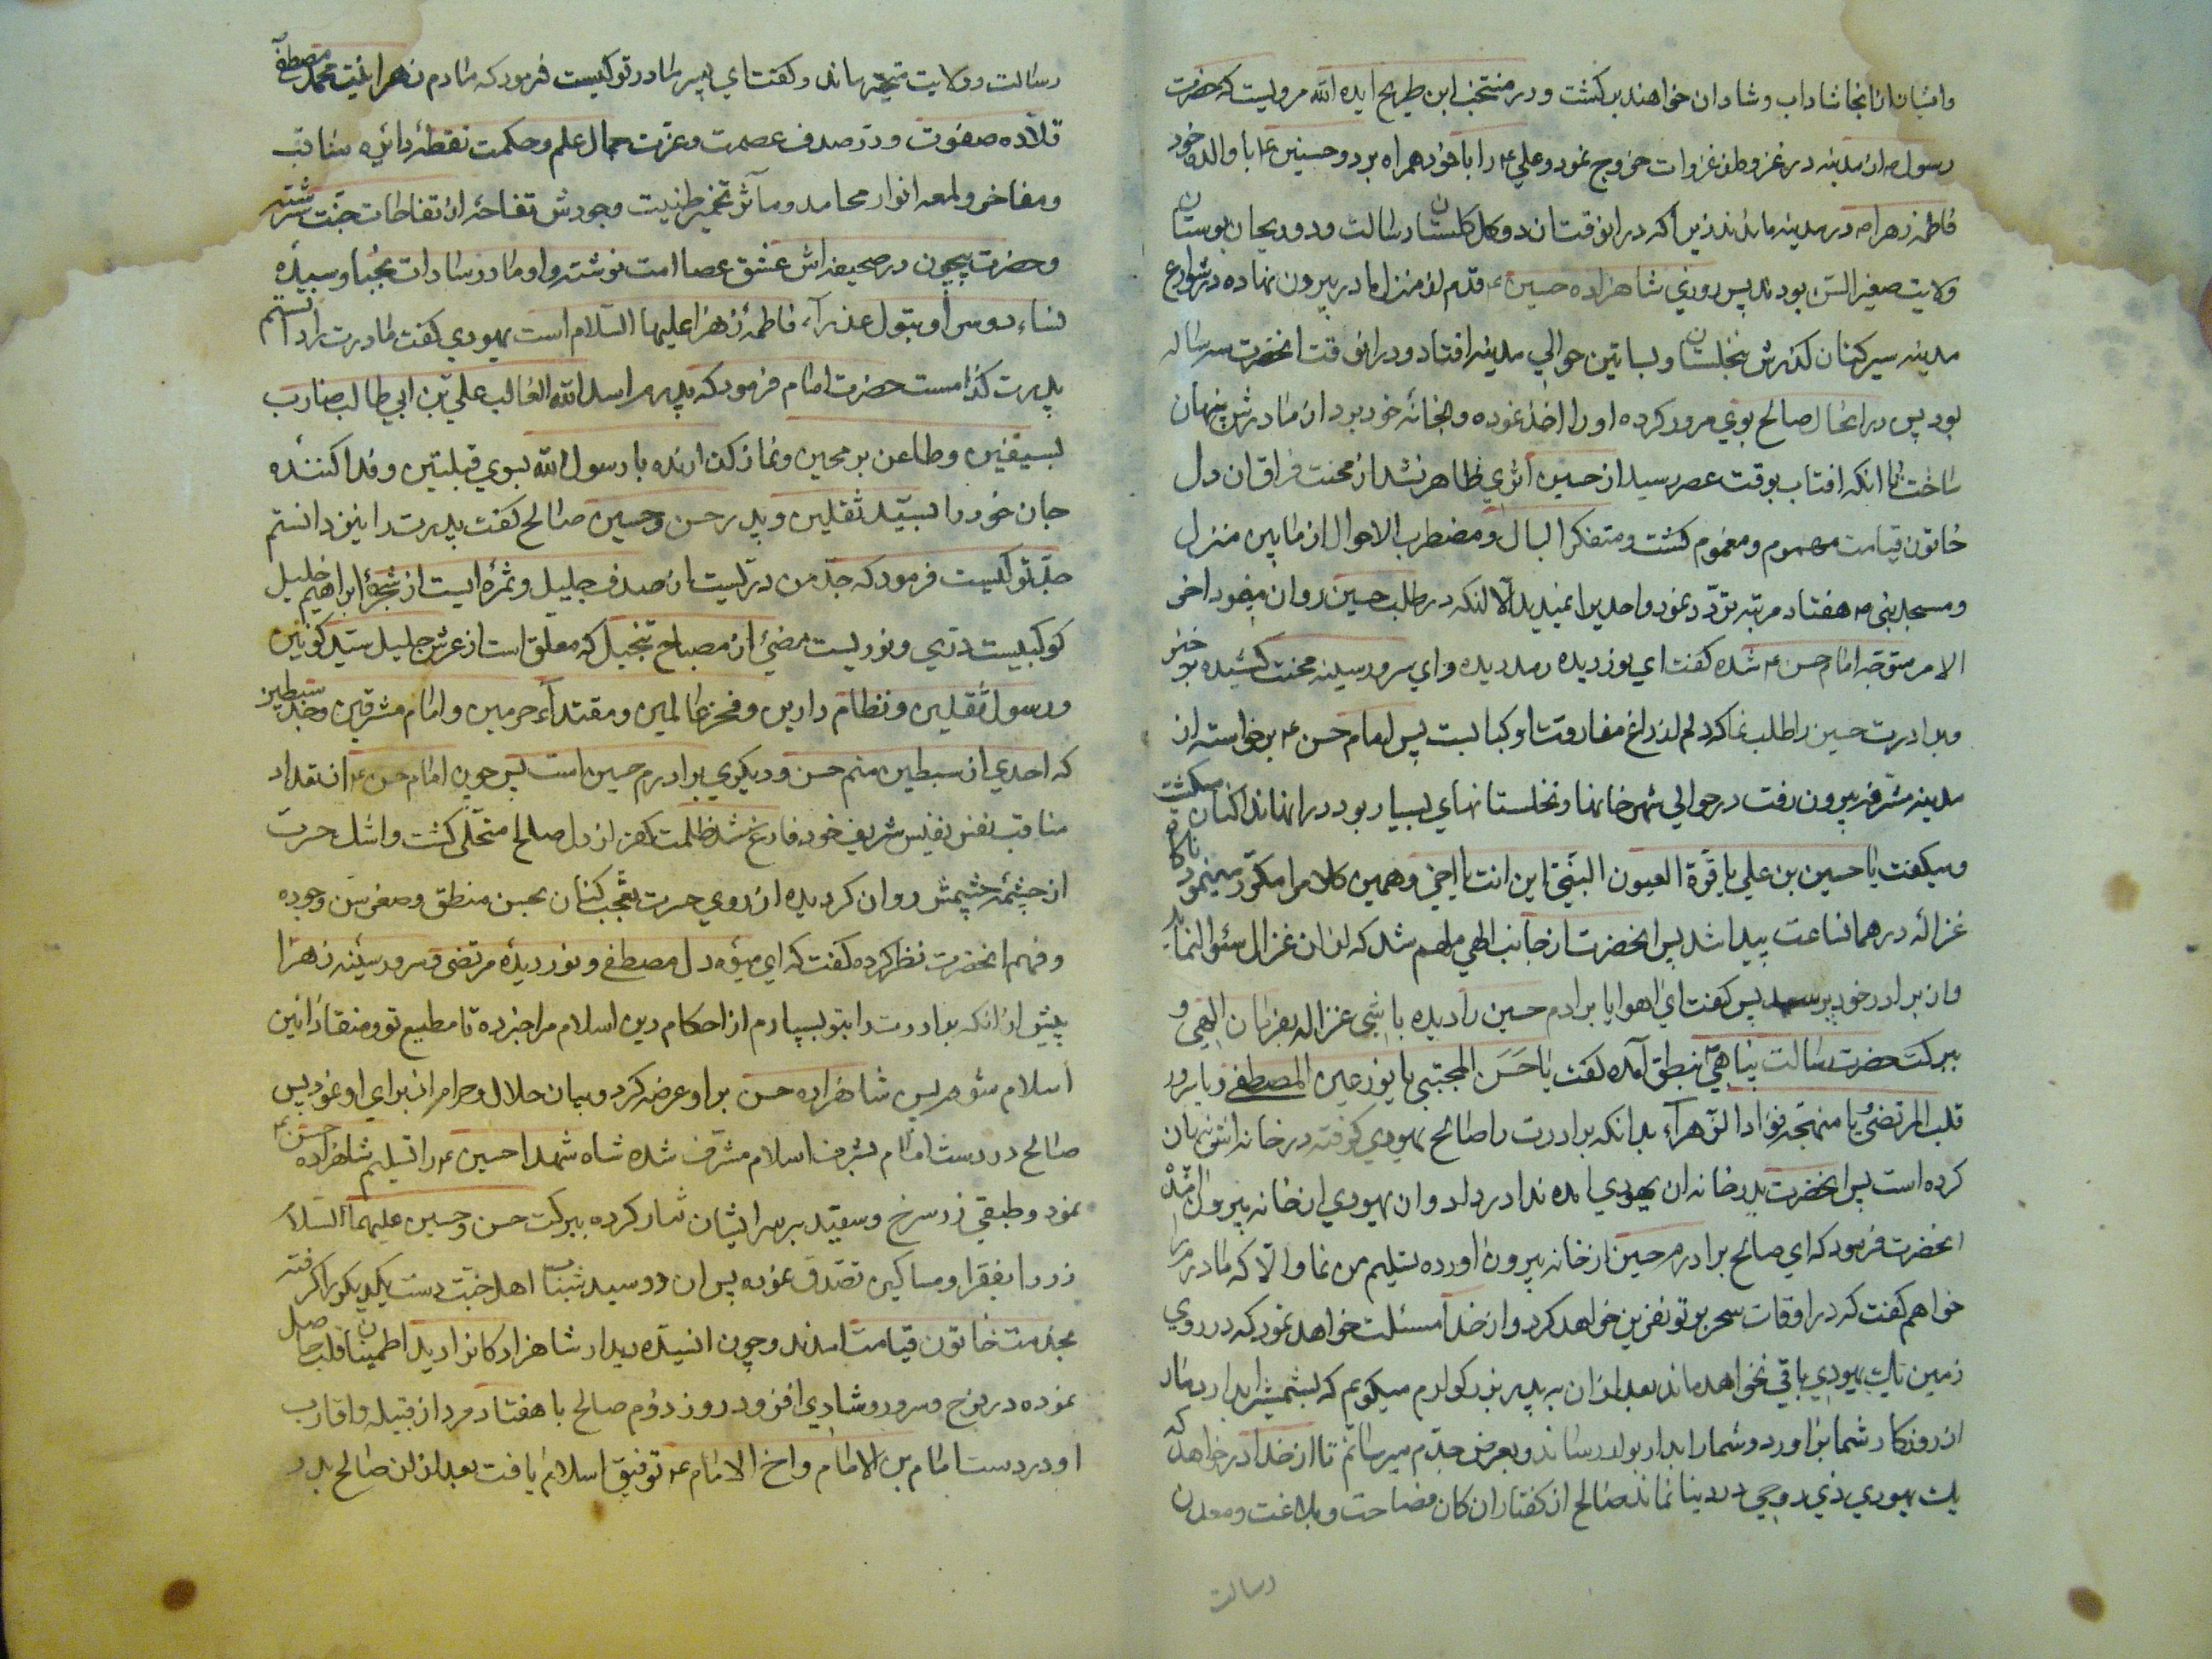 وایشان ازانجا شاداب وشادان خواهند برگشت ودر منتخب ابن طریح ایده الله مرویست که حضرت
رسول ص از مدینه در غزوه از غزوات خروج نمود وعلی ع را با خود همراه برد وحسنین ع با والده خود
فاطمه زهرا ص در مدینه ماندند زیرا که در انوقت ان دو گل گلستان رسالت ودو ریحان بوستان
ولایت صغیر السن بودند پس روزی شاهزاده حسین ع قدم از منزل مادر بیرون نهاده در شوارع
مدینه سیر کنان گذرش بنخلستان وبساتین حوالی مدینه افتاد ودر انوقت انحضرت سه ساله
بود پس در انحال صالح بوی مرور کرده او را اخذ نموده وبخانه خود برد از مادرش پنهان
ساخت تا انکه افتاب بوقت عصر رسید از حسین اثری ظاهر نشد از محنت فراق ان دل
خاتون قیامت مهموم ومغموم گشت ومتفکر البال ومضطرب الاحوال از مابین منزل
ومسجد نبی ص هفتاد مرتبه تردد نمود واحدیرا نمیدید الا انکه در طلب حسین روان مینمود اخر
الامر متوجه امام حسن ع شده گفت ای نور دیده رمد دیده وای سرور سینه محنت کشیده برخیز
وبرادرت حسین را طلب نما که دلم از داغ مفارقت او کبابست پس امام حسن ع برخواسته از
مدینه مشرفه بیرون رفت در حوالی شهر خانها ونخلستانهای بسیار بود در انها ندا کنان میگشت
ومیگفت یا حسین بن علی یا قرة العیون النبی این انت یا اخی وهمین کلام را مکرر مینمود ناگاه
غزاله در همانساعت پیدا شد پس انحضرت از جانب الهی ملهم شد که از ان غزال سئوال نماید
وان برادر خود پرسید پس گفت ای اهو ایا برادرم حسین را دیده یا ظبی غزاله بفرمان الهی و
ببرکت حضرت رسالت پناهی بنطق آمده گفت یا حَسَن المجتبی یا نور عین المصطفی ویا سرور
قلب المرتضی یا مهجة فؤاد الزهراء بدانکه برادرت را صالح یهودی گرفته در خانه اش پنهان
کرده است پس انحضرت بدر خانه ان یهودی امده ندا در داد وان یهودی از خانه بیرون امد
انحضرت فرمود که ای صالح برادرم حسین از خانه بیرون اورده تسلیم من نما والا که مادرم را
خواهم گفت که در اوقات سحر بر تو نفرین خواهد کرد واز خدا مسئلت خواهد نمود که در روی
زمین یک یهودی باقی نخواهد ماند بعد از ان به پدر بزرگوارم میگویم که بشمشیر ابدار دمار
از روزگار شما براورد وشما را بدار بوار رساند وبعرض جدم میرسانم تا از خدا در خواهد که
یک یهودی ذی روحی در دینا نماند صالح از گفتار ان کان فصاحت وبلاغت ومعدن
رسالت
رسالت وولایت متحیر ماند وگفت ای پسر مادر تو کیست فرمود که مادرم زهرا بنت محمد مصطفی
قلاده صفوت ودر صدف عصمت وعزت جمال علم وحکمت نقطه دائره مناقب
ومفاخر ولمعه انوار محامد ومآثر تخمیر طینت وجودش تفاحه از تفاحات جنت سرشته
وحضرت بیچون در صحیفه اش عتق عصاة امت نوشته واو مادر سادات نجبا وسیده
نساء دوسرا وبتول عذراء فاطمه زهرا علیها السلام است یهودی گفت مادرت را دانستم
پدرت کدامست حضرت امام فرمود که پدرم اسد الله الغالب علی بن ابی طالب ضارب
بسیفین وطاعن برمحین ونماز گذارنده با رسول الله بسوی قبلتین وفدا کننده
جان خود را بسید ثقلین وپدر حسن وحسین صالح گفت پدرت را نیز دانستم
جد تو کیست فرمود که جد من دریست از صدف جلیل وثمره ایست از شجره ابراهیم خلیل
کوکبیست دری ونوریست مضئ از مصباح تبجیل که معلق است از عرش جلیل سید کونین
ورسول ثقلین ونظام دارین وفخر عالمین ومقتداء حرمین وامام مشرقین وجد سبطین
که احدی از سبطین منم حسن ودیگری برادرم حسین است پس چون امام حسن ع از تعداد
مناقب نفس نفیس شریف خود فارغ شد ظلمت کفر از دل صالح متجلی گشت واشک حسرت
از چشمه چشمش روان گردیده از روی حیرت تعجب کنان بحسن منطق وصغر سن وجوده
وفهم انحضرت نظر کرده گفت که ای میوه دل مصطفی ونور دیده مرتضی وسرور سینه زهرا
پیش از انکه برادرت را بتو بسپارم از احکام دین اسلام مرا خبر ده تا مطیع تو ومنقاد ائین
اسلام شوم پس شاهزاده حسن بر او عرضه کرد وبیان حلال وحرام از برای او نمود پس
صالح در دست امام بشرف اسلام مشرف شده شاه شهدا حسین ع را تسلیم شاهزاده حسن ع
نمود وطبقی زر سرخ وسفید بر سر ایشان نثار کرده ببرکت حسن وحسین علیهما السلام
زر را بفقرا ومساکین تصدق نموده پس ان دو سید شباب اهل جنت دست یکدیگر را گرفته
بخدمت خاتون قیامت امدند وچون انسیده دیدار شاهزادگانرا دید اطمینان قلب حاصل
نموده در فرح وسرور وشادی افزود روز دوم صالح با هفتاد مرد از قبیله واقارب
او در دست امام بن الامام واخ الامام ع توفیق اسلام یافت بعد از ان صالح بدر